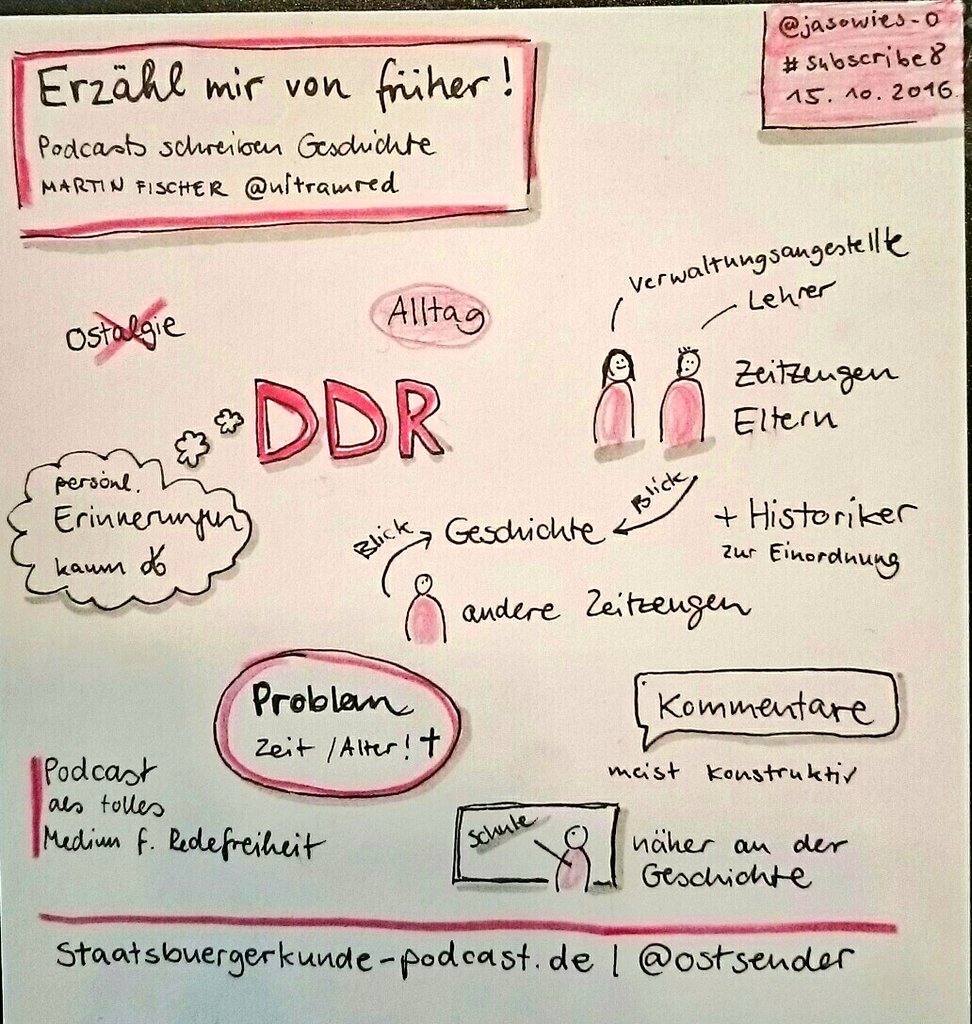 Erzähl mir von früher!
Podcasts schreiben Geschichte
MARTIN FISCHER @ultramred
@jasowies-o
#subscribe8
15.10.2016
Verwaltungsangestellte
Lehrer
Ostalgie
Alltag
Zeitzeugen
Eltern
DDR
persönl.
Erinnerungen
kaum
Blick
Geschichte
Blick
+ Historiker
zur Einordnung
andere Zeitzeugen
Problem
Zeit / Alter! †
Kommentare
meist konstruktiv
Podcast
als tolles
Medium f. Redefreiheit
Schule
näher an der
Geschichte
Staatsbuergerkunde-podcast.de | @ostsender